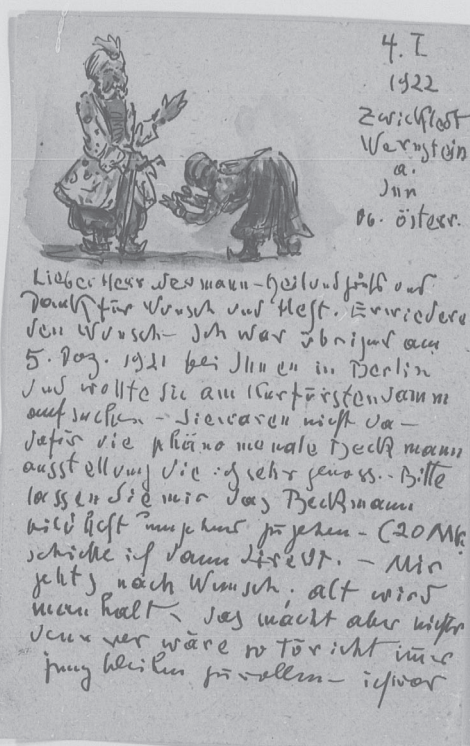 4. I
1922
Zwickledt
Wernstein
a.
Inn
Ob. österr.
Lieber Herr - Heil und und
Dank für Wunsch und Heft. Erwidere
den Wunsch - Ich war übrigens am
5. Dez. 1921 bei Ihnen in Berlin
und wollte sie am Kurfürstendamm
aufsuchen - sie waren nicht da -
dafür die phänomenale Beckmann
ausstellung die ich sehr genoss. - Bitte
lassen Sie mir das Beckmann
heft zugehen - (20 Mk
schicke ich dann direkt. - Mir
gehts nach Wunsch, alt wird
man halt, das macht aber nichts
denn wer wäre so töricht immer
jung bleiben zu wollen - ich war